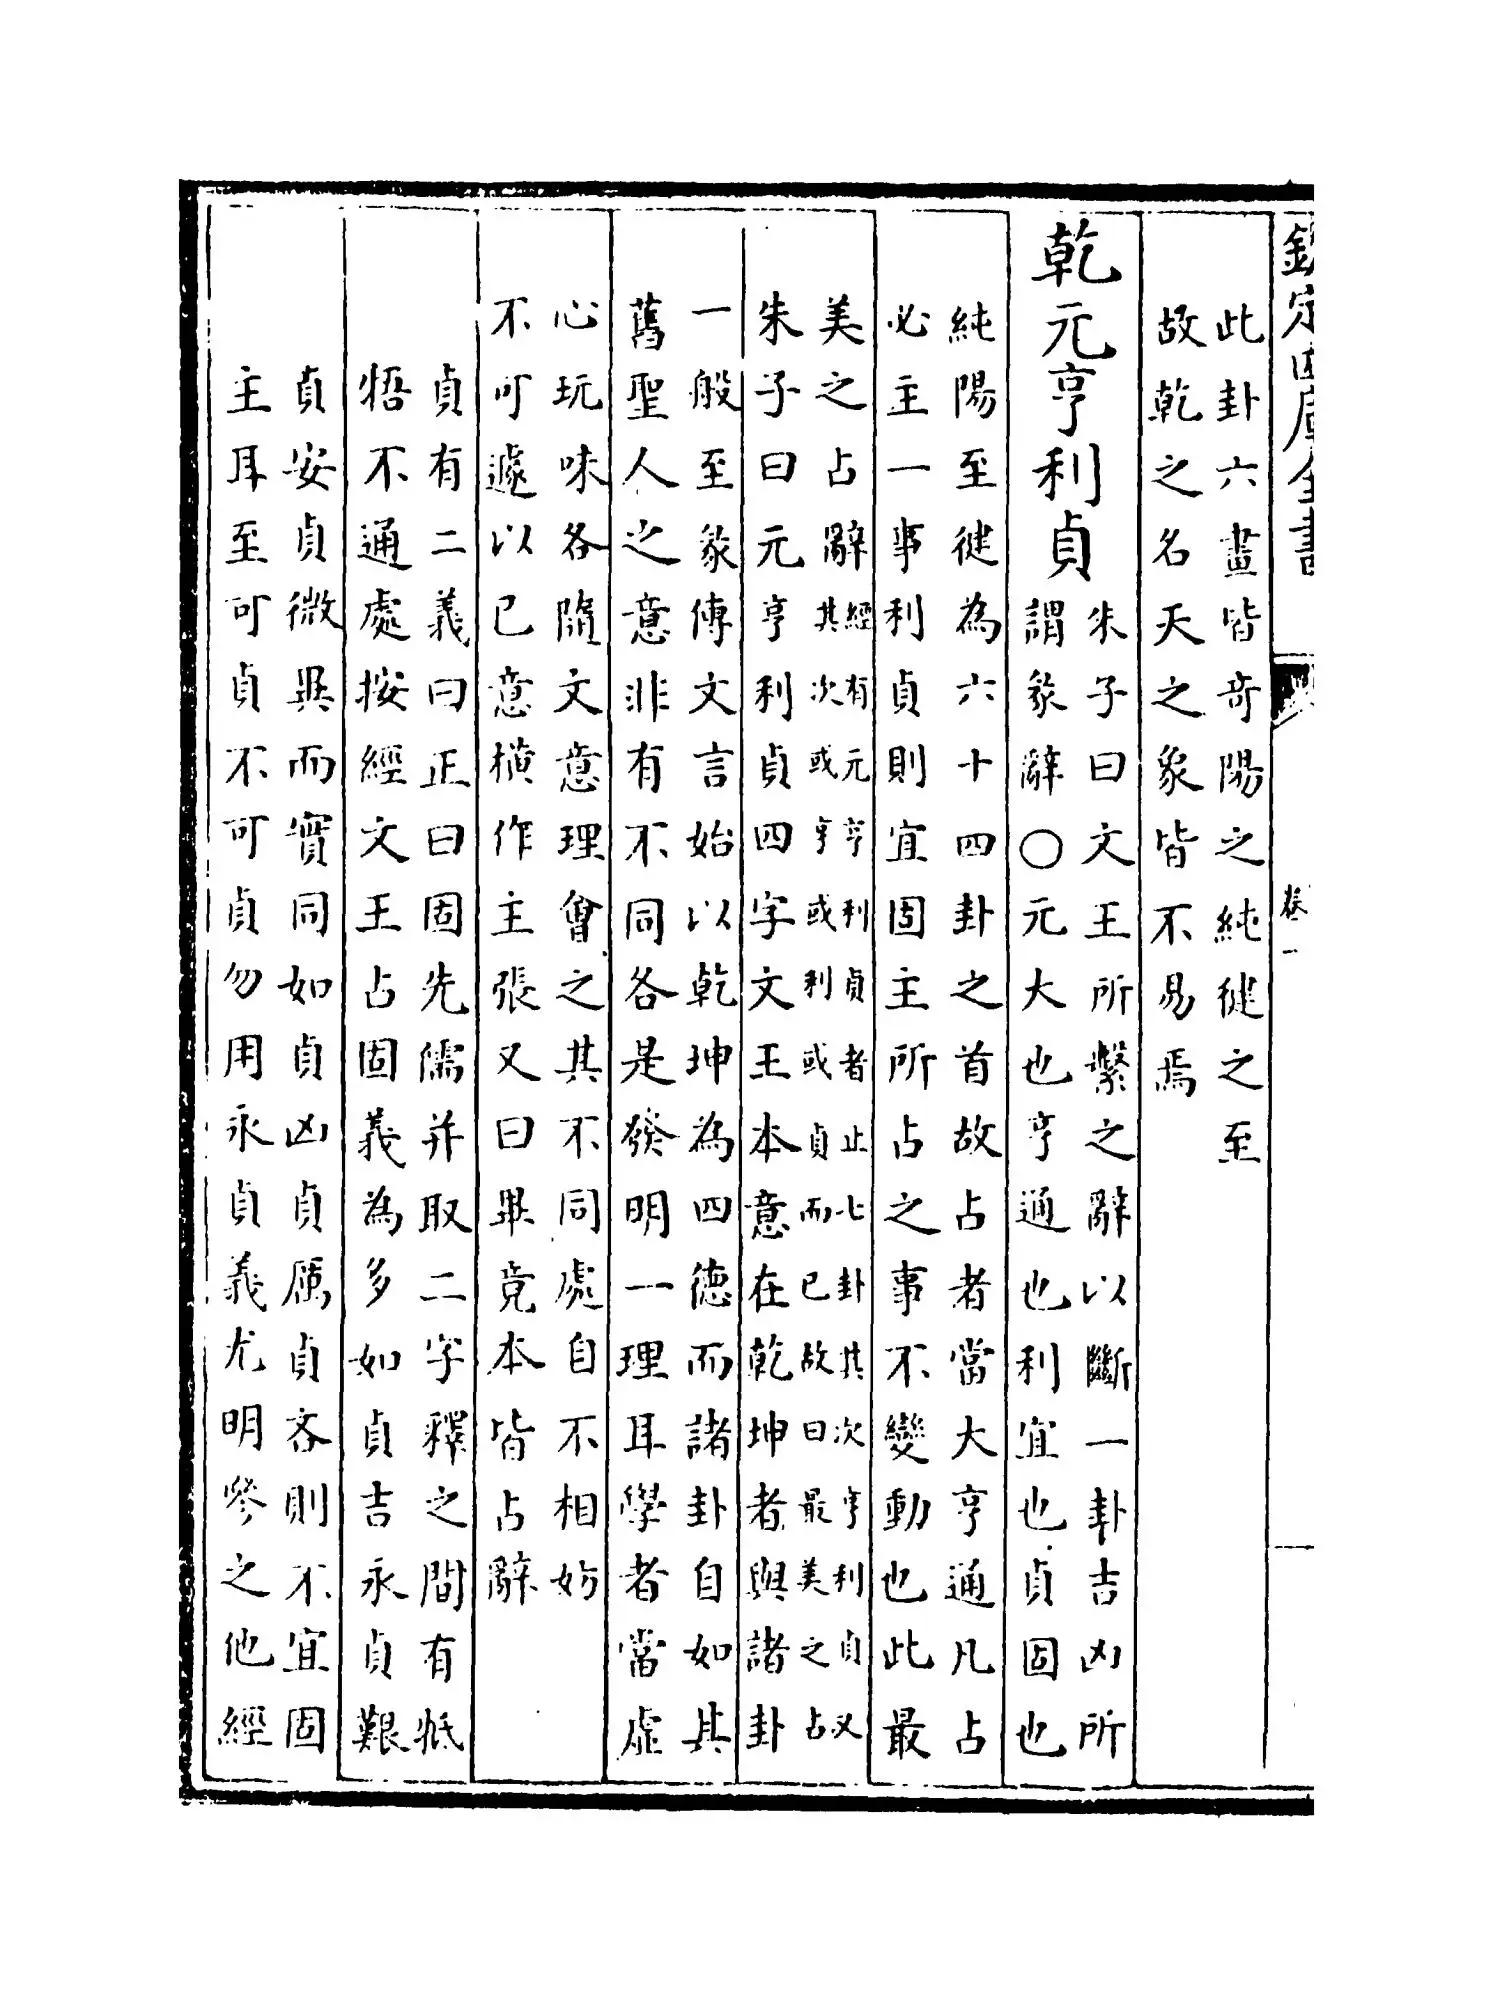 欽定四庫全書
卷一
此卦六畫皆奇陽之純健之至
故乾之名天之象皆不易焉
乾元亨利貞
朱子曰文王所繫之辭以斷一卦吉凶所
謂彖辭〇元大也亨通也利宜也貞固也
純陽至健為六十四卦之首故占者當大亨通凡占
必主一事利貞則宜固主所占之事不變動也此最
美之占辭
經有元亨利貞者止七卦其次亨利貞又
其次或亨或利或貞而已故曰最美之占
朱子曰元亨利貞四字文王本意在乾坤者與諸卦
一般至彖傳文言始以乾坤為四德而諸卦自如其
舊聖人之意非有不同各是發明一理耳學者當虛
心玩味各隨文意理會之其不同處自不相妨
不可遽以已意橫作主張又曰畢竟本皆占辭
貞有二義曰正曰固先儒并取二字釋之間有牴
牾不通處按經文王占固義為多如貞吉永貞艱
貞安貞微異而實同如貞凶貞厲貞吝則不宜固
主耳至可貞不可貞勿用永貞義尤明參之他經